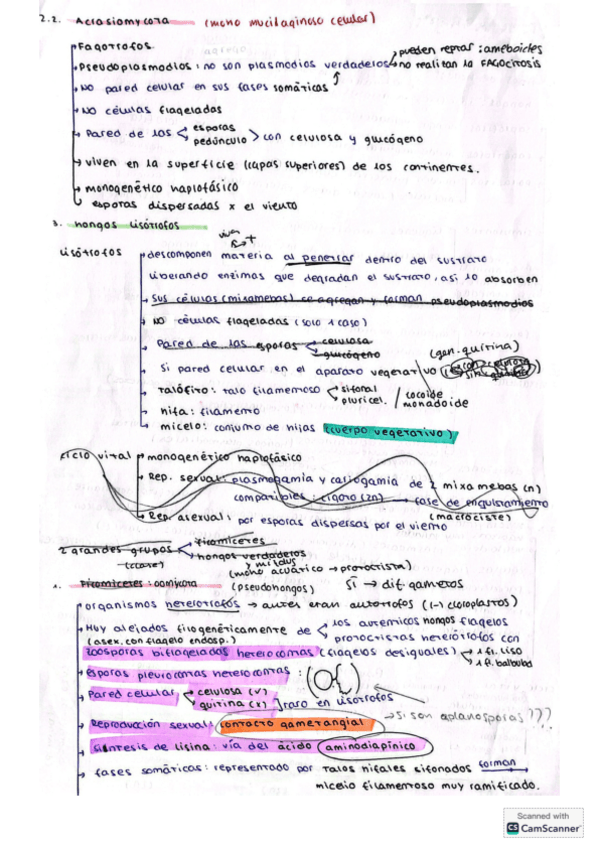 2.2. Acrasiomycota (moho mucilaginoso celular)
Fagotrofos.
Pseudoplasmodios: no son plasmodios verdaderos
pueden reptar: ameboides
no realizan la FAGOCITOSIS
NO pared celular en sus fases somáticas
NO células flageladas
Pared de las esporas pedúnculo con celulosa y glucógeno
viven en la superficie (capas superiores) de los continentes.
monogenético haplofásico
esporas dispersadas x el viento
3. Hongos Lisótrofos
Lisótrofos
descomponen materia al penetrar dentro del sustrato
liberando enzimas que degradan el sustrato, así lo absorben
Sus células (mixamebas) se agregan y forman pseudoplasmodios
NO células flageladas (solo 1 caso)
Pared de las esporas celulosa
glucógeno
Si pared celular en el aparato vegetativo (gen. quitina)
Talófito: talo filamentoso sifonal
pluricel. / cocoide
monadoide
hifa: filamento
micelo: conjunto de hifas (cuerpo vegetativo)
Ciclo vital monogenético haplofásico
Rep. sexual: plasmogamia y cariogamia de 2 mixamebas (n)
compatibles: cigoto (2n) → fase de enquistamiento
(macrociste)
Rep. asexual: por esporas dispersas por el viento
2 grandes grupos ficomicetes
(clase) hongos verdaderos
mildus
(moho acuático → protoctista)
1. Ficomicetes: oomicota (pseudohongos) Sí → dif. gametos
organismos heterótrofos → antes eran autótrofos ((-) cloroplastos)
Muy alejados filogenéticamente de los auténticos hongos flagelos
(asex. con flagelo endosp.) protoctistas heterótrofos con
zoosporas biflageladas heterocontas (flagelos desiguales) 1 fl. liso
1 fl. barbulado
esporas pleurocontas heterocontas:
Pared celular celulosa (✓)
quitina (x) raro en lisótrofos
Reproducción sexual: contacto gametangial → si son aplanosporas???
síntesis de lisina: vía del ácido aminodiapínico
fases somáticas: representado por talos hifales sifonados forman
micelio filamentoso muy ramificado.
Scanned with
CS CamScanner